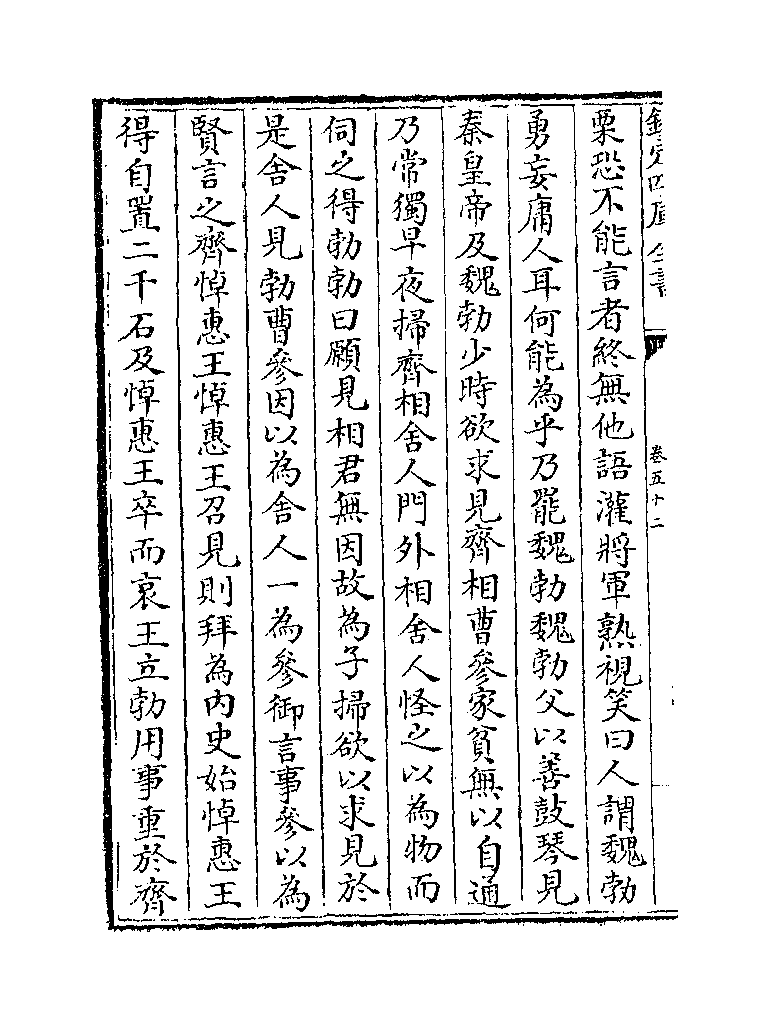 欽定四庫全書
卷五十二
栗恐不能言者終無他語灌將軍熟視笑曰人謂魏勃
勇妄庸人耳何能為乎乃罷魏勃魏勃父以善鼓琴見
秦皇帝及魏勃少時欲求見齊相曹參家貧無以自通
乃常獨早夜掃齊相舍人門外相舍人怪之以為物而
伺之得勃勃曰願見相君無因故為子掃欲以求見於
是舍人見勃曹參因以為舍人一為參御言事參以為
賢言之齊悼惠王悼惠王召見則拜為內史始悼惠王
得自置二千石及悼惠王卒而哀王立勃用事重於齊